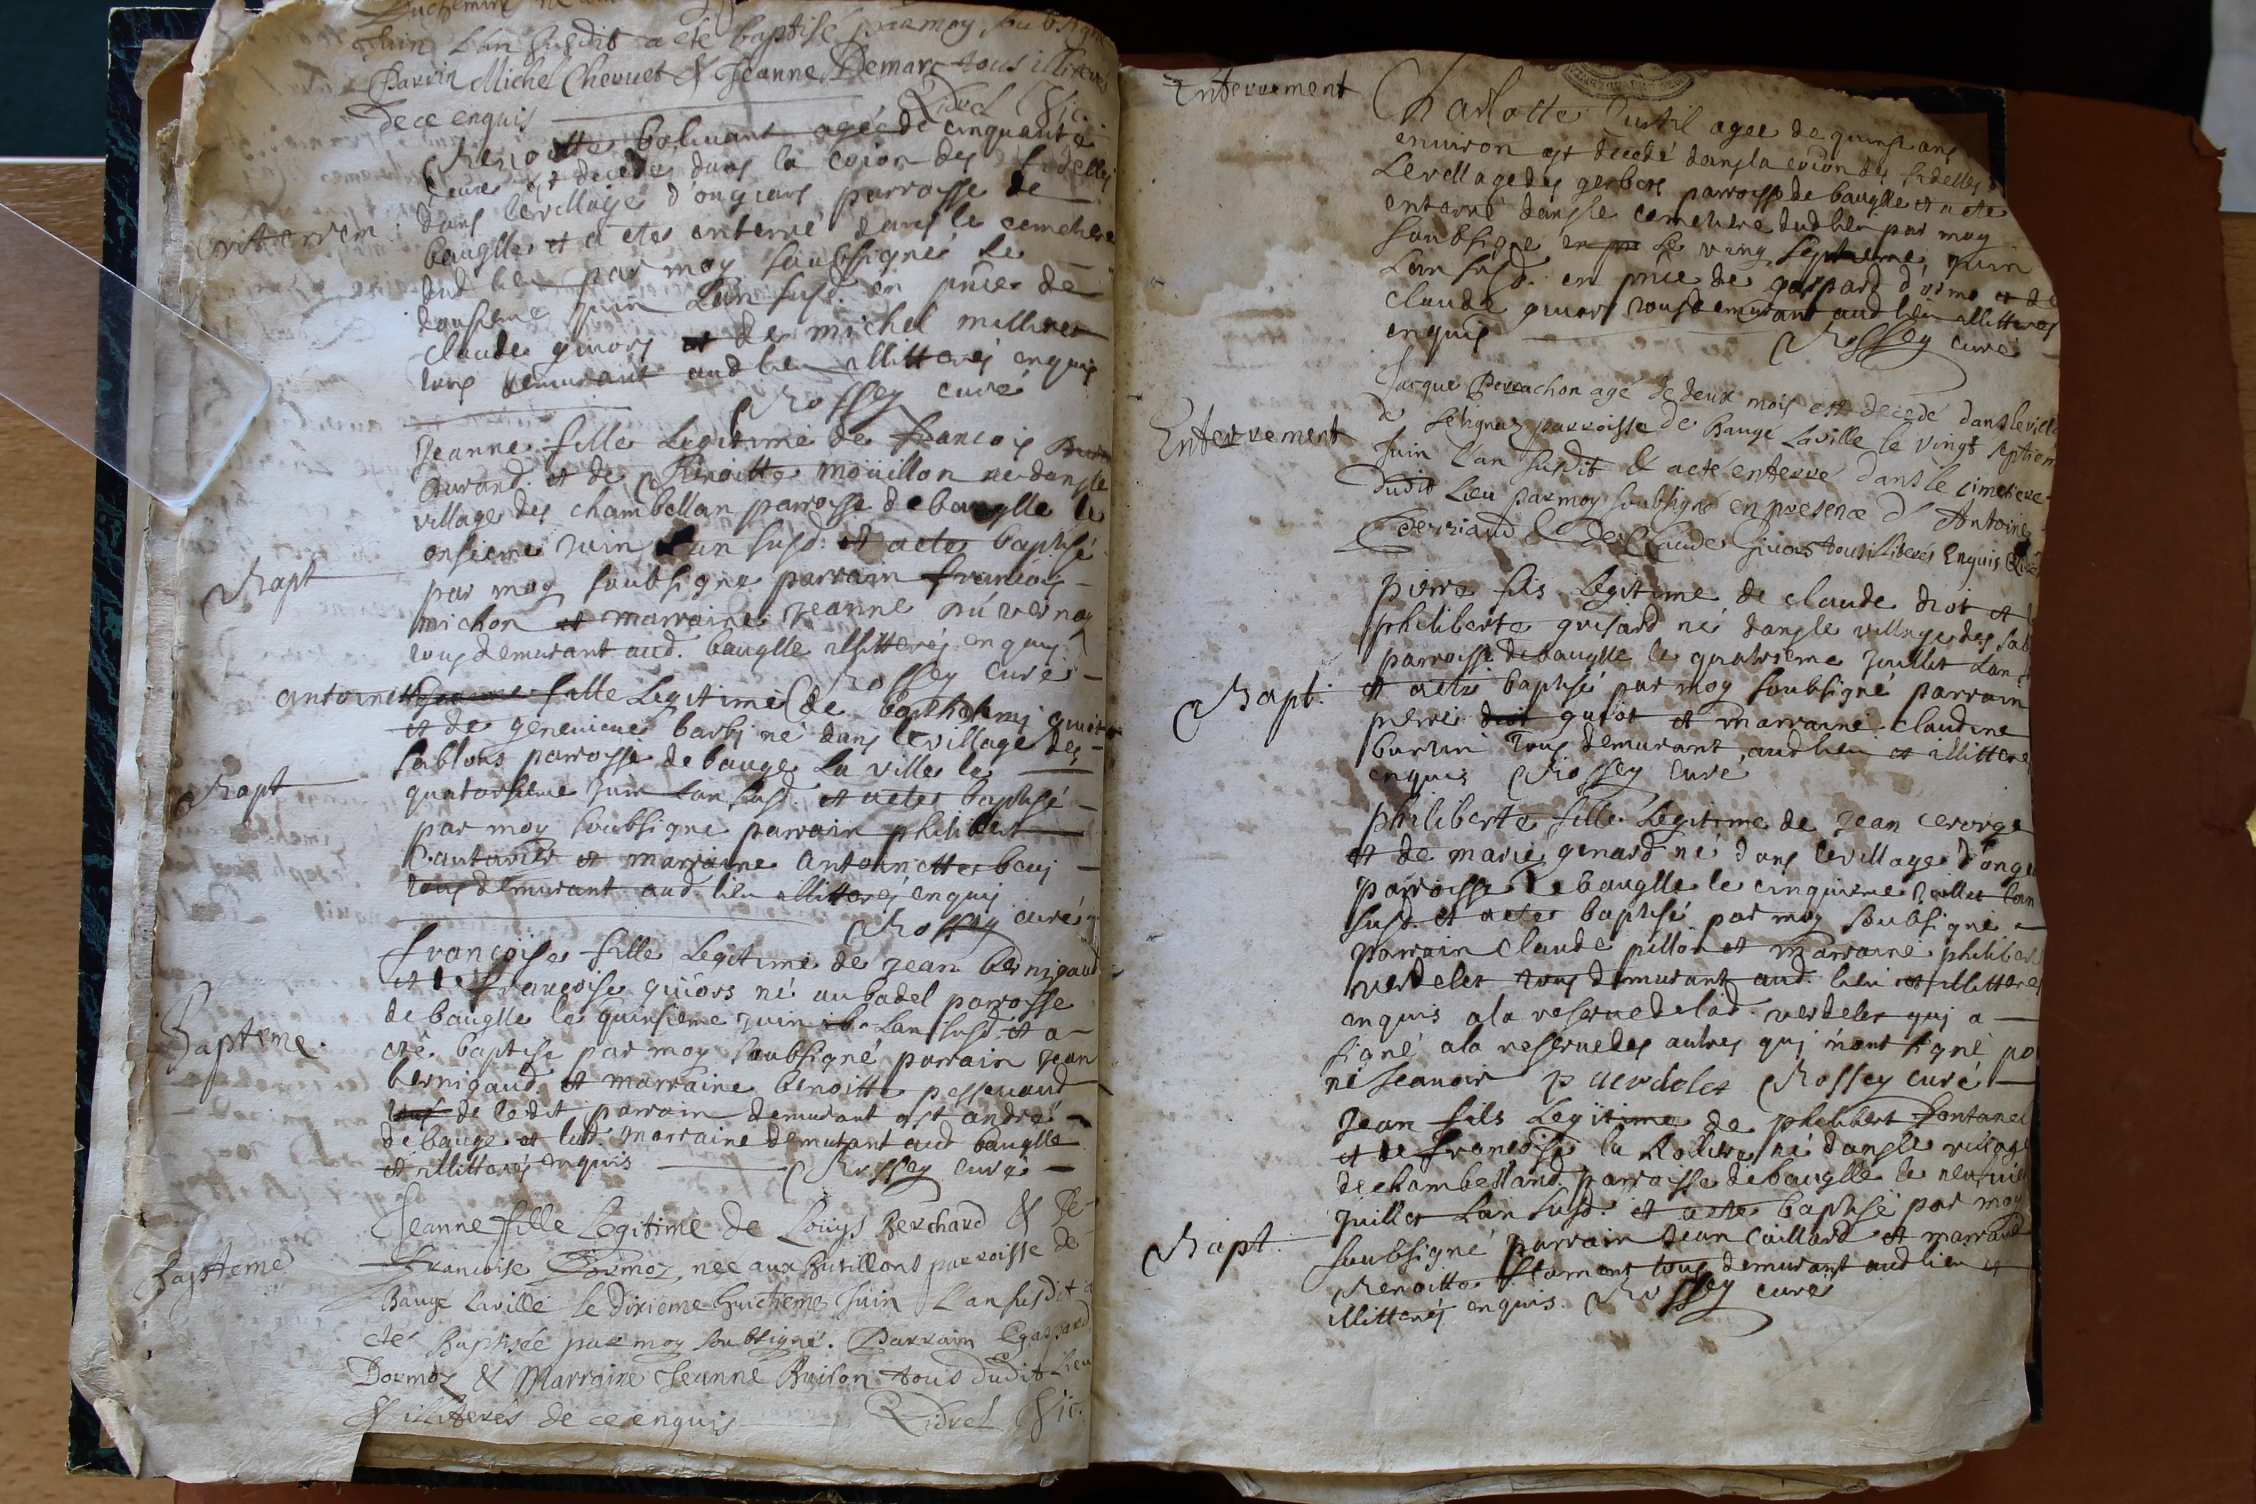 Juin L'an susdit a eté baptisé par moy soubsigné
Parrin Michel Chervet & Jeanne Demarc tous illiterés
de ce enquis Vic.
Benoitte agée de cinquante
est decedeé dans la coion des fidelles
enterrem. dans le village d'ongiars parroisse de
bauglle et a eté enterré dans le cemetiere
dud lieu par moy soubsigné le
dousieme juin L'an susd. en pnce de
claude guiors et de michel
tous demurant aud lieu illitterés enquis
Rossey curé
Jeanne fille Legitime de francois
durand et de Benoitte moüillon né dans le
village des chambellan parroisse de bauglle le
onsieme Juin L'an susd. et a eté baptisé
Bapt par moy soubsigné parrain francois
michon et marraine Jeanne du vernay
tous demurant aud. bauglle illitterés enquis
Rossey curé
antoinette fille Legitime de barthelemj guiot
et de genevieve barbj né dans le village des
sablons parroisse de bauge La ville le
Bapt quatorsieme juin L'an susd. et a eté baptisé
par moy soubsigné parrain philibert
et marraine antoinette
tous demurant aud. lieu illitterés enquis
Rossey curé
françoise fille Legitime de jean bernigaud
et de françoise guiors né au badel parroisse
de bauglle le quinsieme juin L'an susd. et a
Bapteme. eté baptisé par moy soubsigné parrain jean
bernigaud et marraine benoitte pessevaud
de ledit parrain demurant a st andre
de bauge et lad. marraine demurant aud bauglle
et illitterés enquis Rossey curé
Jeanne fille Legitime de Louys Berchard & de
Bapteme Francoise Dormoz née aux Butillont parroisse de
Baugé Laville le dixieme huictieme Juin L'an susdit a
eté Baptisée par moy soubsigné. Parrain Gaspard
Dormoz & Marraine Jeanne Buiron tous dudit Lieu
& illiterés de ce enquis Vic.
Enterrement Charlotte agee de quinse ans
environ est decedé dans la coion des fidelles
Le village des gerbers parroisse de bauglle et a eté
enterré dans le cemetiere dud lieu par moy
soubsigné le ving septieme juin
L'an susd. en pnce de gaspard d'ormo et de
claude guiors tous demurant aud lieu illitterés
enquis Rossey curé
Jacque Perrachon agé de deux mois est decedé dans le ville
Enterrement de Setignaz parroisse de Baugé Laville le vingt septiem
Juin L'an susdit & a eté enterré dans le cimetiere
dudit Lieu par moy soubsigné en presence d'Antoine
& de Claude Guiors tous illiterés Enquis
pierre fils Legitime de claude droit et
philiberte guisard né dans le village des sab
parroisse de bauglle le quatrieme juillet L'an
Bapt. et a eté baptisé par moy soubsigné parrain
pierre guiot et marraine claudine
burtin tous demurant aud lieu et illittere
enquis Rossey curé
philiberte fille Legitime de jean
et de marie genard né dans le village d'onge
parroisse de bauglle le cinquieme juillet L'an
susd. et a eté baptisé par moy soubsigné
parrain claude pillon et marraine philibert
verdelet tous demurant aud. lieu et illitterés
enquis a la reserve de lad. verdelet quj a
signé a la reserve des autres quj n'ont signé po
ne scavoir p verdelet Rossey curé
Jean fils Legitime de philibert fontanel
et de francoise la né dans le village
de chambelland parroisse de bauglle le neufvie
juillet L'an susd. et a eté baptisé par moy
Bapt. soubsigné parrain jean Caillard et marraine
Benoitte flamant tous demurant aud lieu et
illitterés enquis. Rossey curé